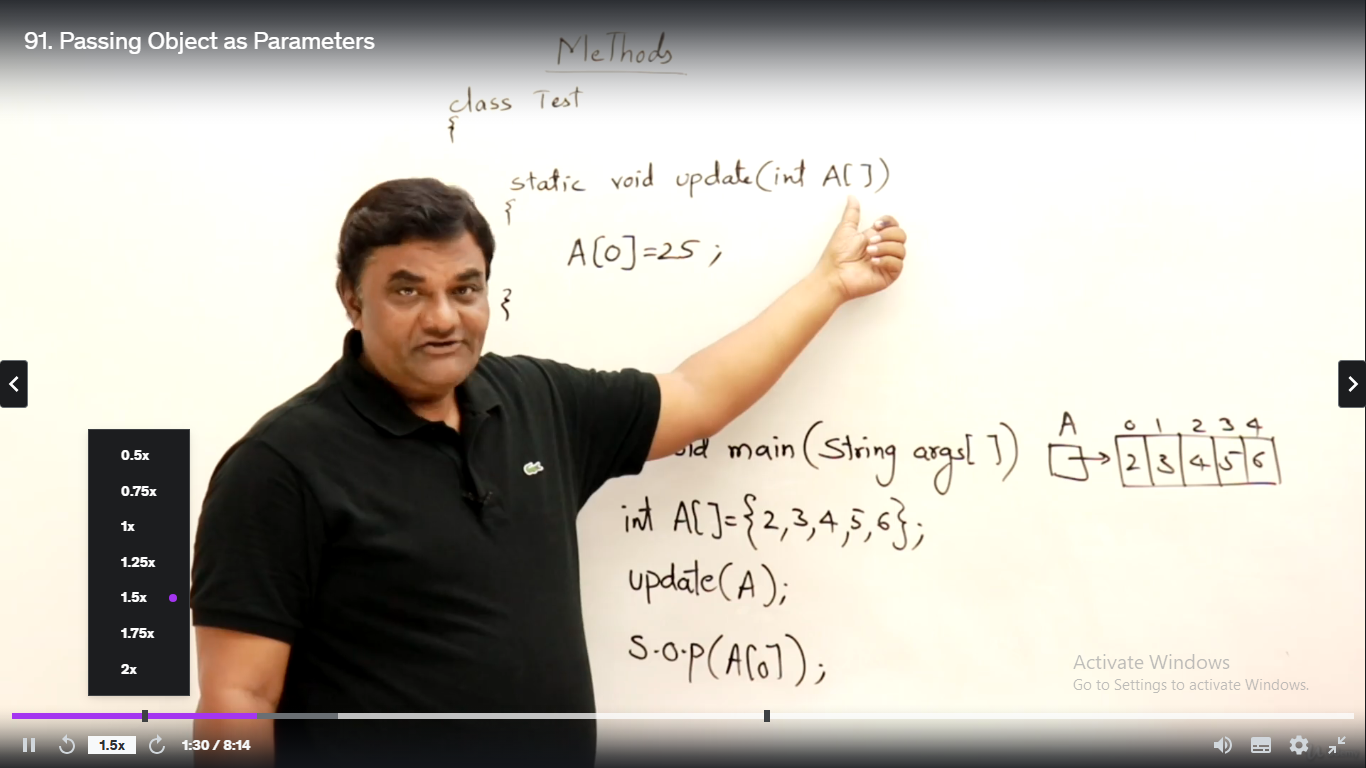 91. Passing Object as Parameters
Methods
class Test
{
static void update(int A[])
{
A[0]=25;
}
main(String args[])
A
0 1 2 3 4
2 3 4 5 6
int A[]={2,3,4,5,6};
update(A);
S.o.p(A[0]);
0.5x
0.75x
1x
1.25x
1.5x
1.75x
2x
Activate Windows
Go to Settings to activate Windows.
1.5x
1:30 / 8:14